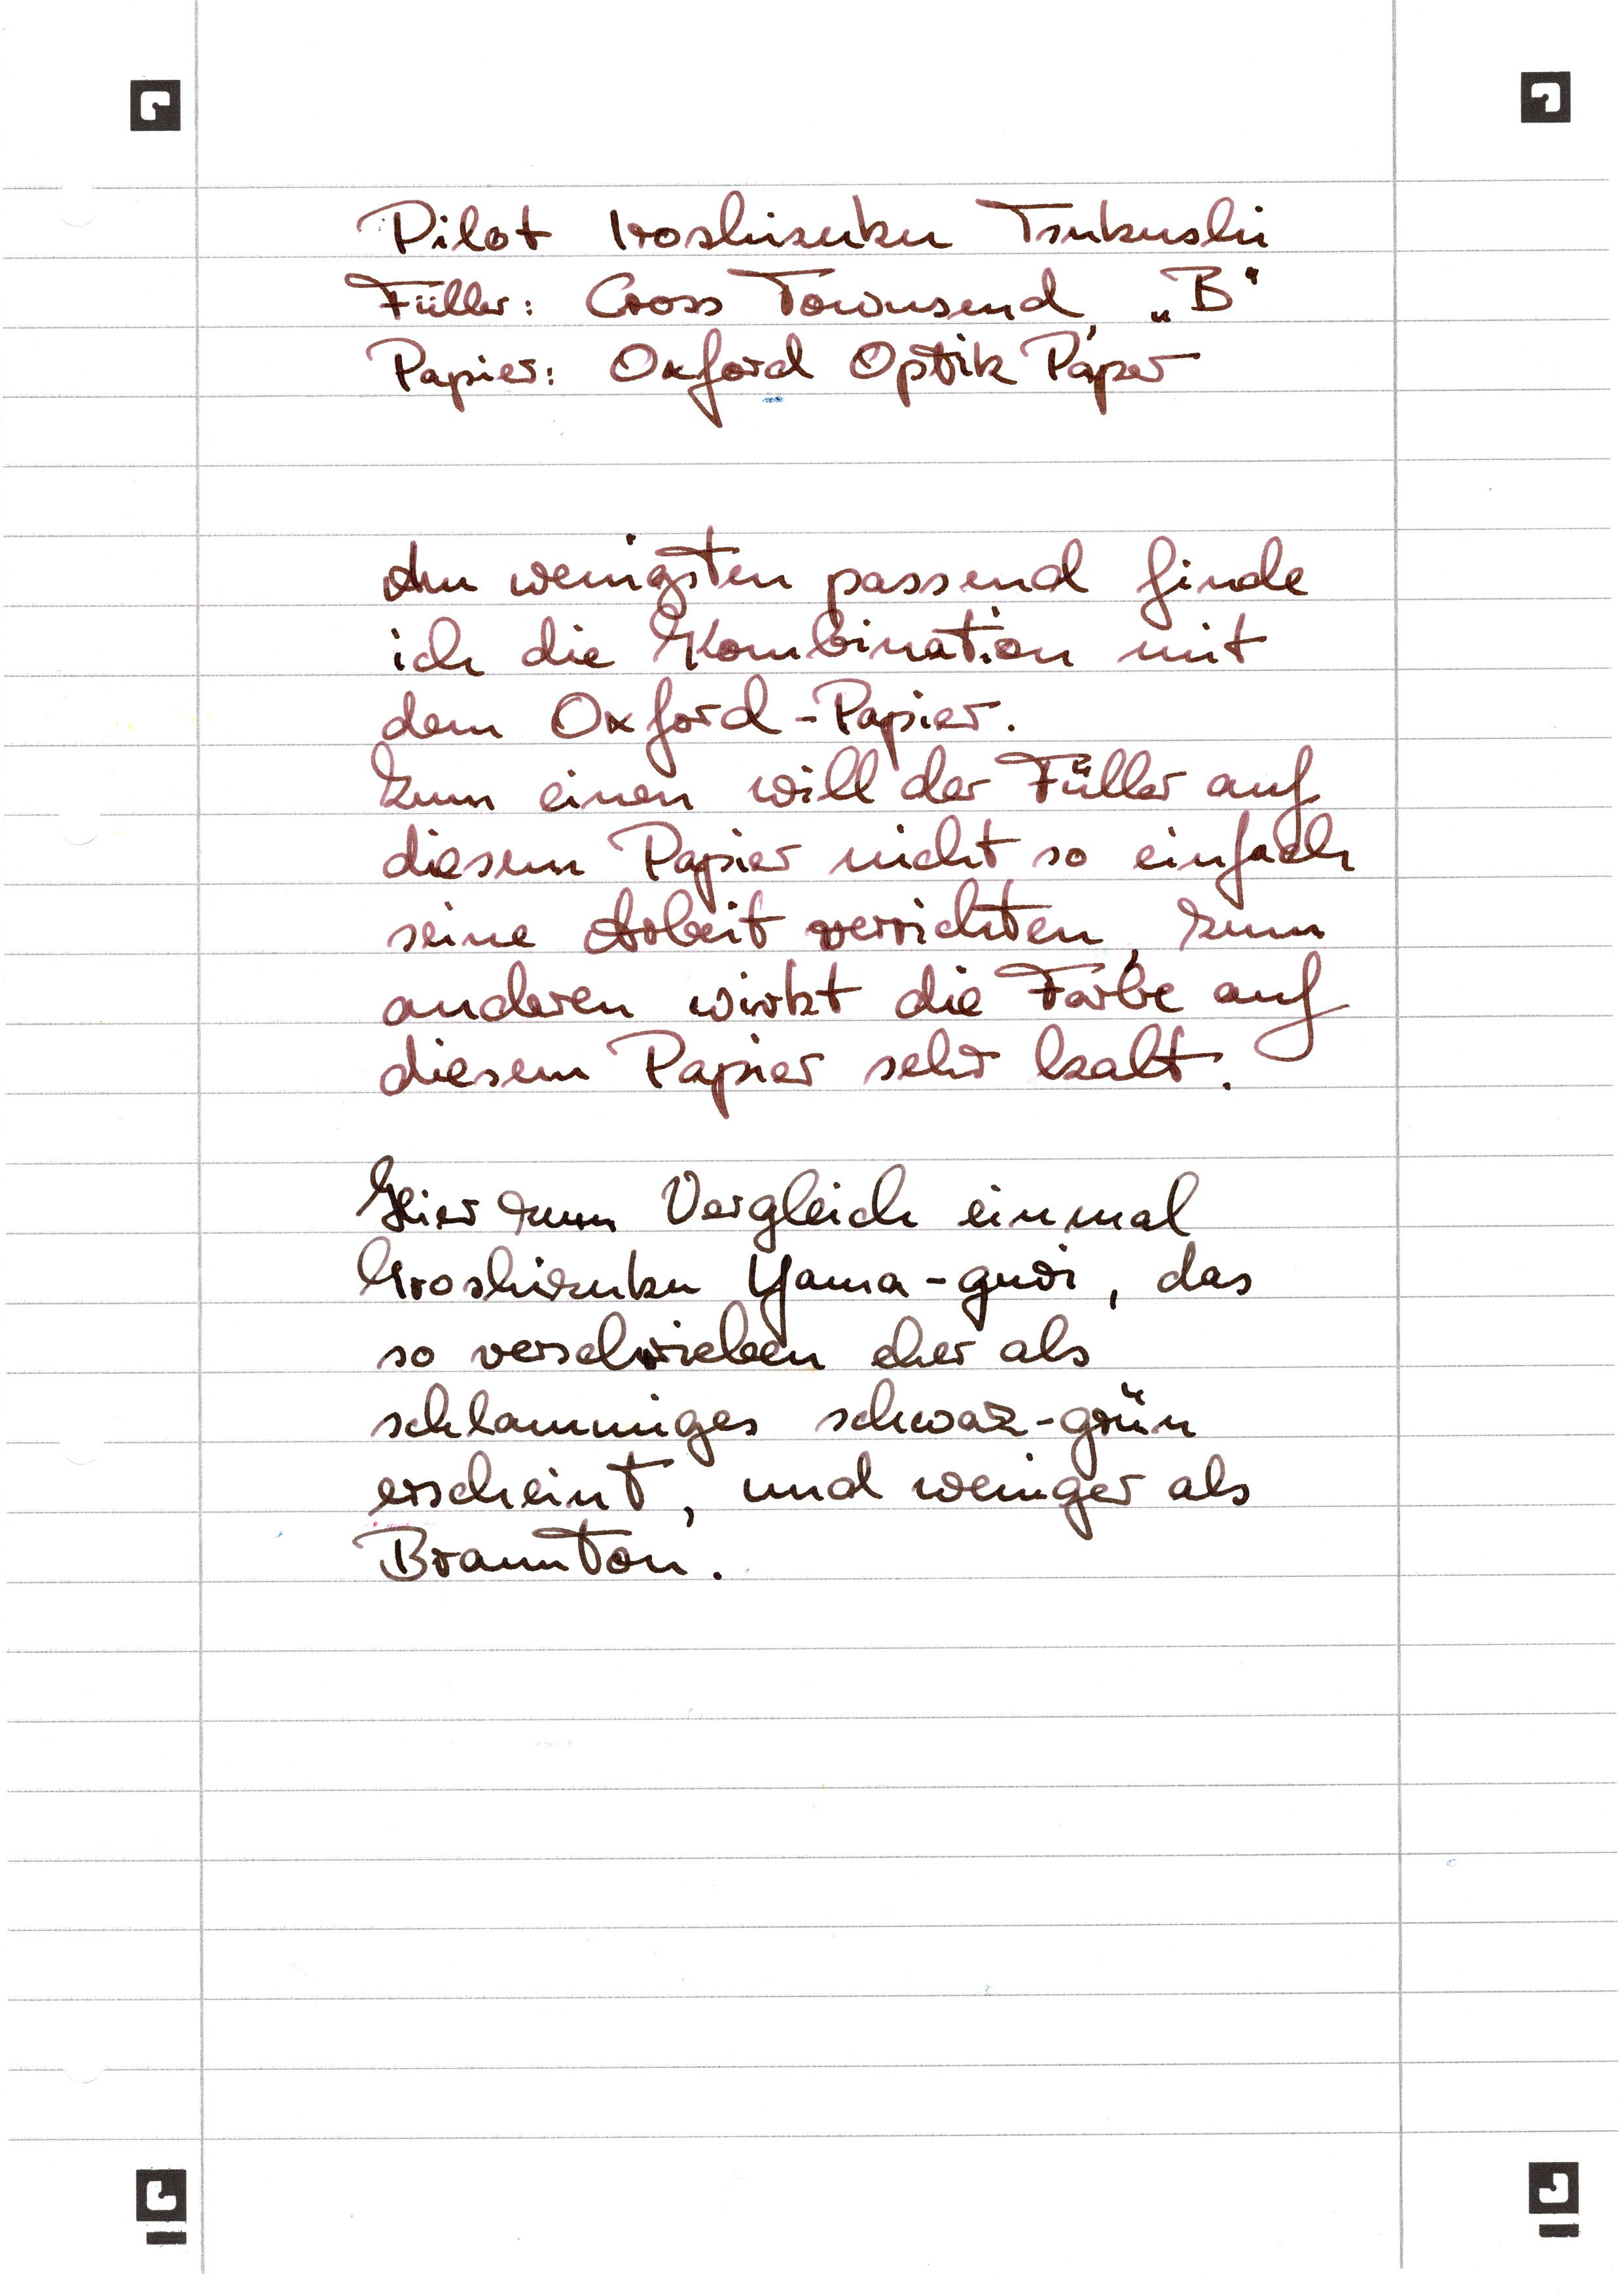 Pilot Iroshizuku Tsukushi
Füller: Cross Townsend, „B“
Papier: Oxford Optik Paper
Am wenigsten passend finde
ich die Kombination mit
dem Oxford-Papier.
Zum einen will der Füller auf
diesem Papier nicht so einfach
seine Arbeit verrichten, zum
anderen wirkt die Farbe auf
diesem Papier sehr kalt.
Hier zum Vergleich einmal
Iroshizuku Yama-guri, das
so verschrieben eher als
schlammiges schwaz-grün
erscheint, und weniger als
Braunton.